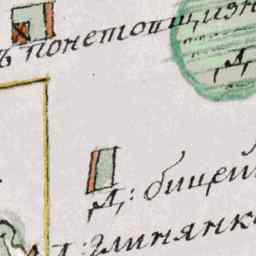 ъ понетовщизн
Д:
Д: бицей
Д: глинянк